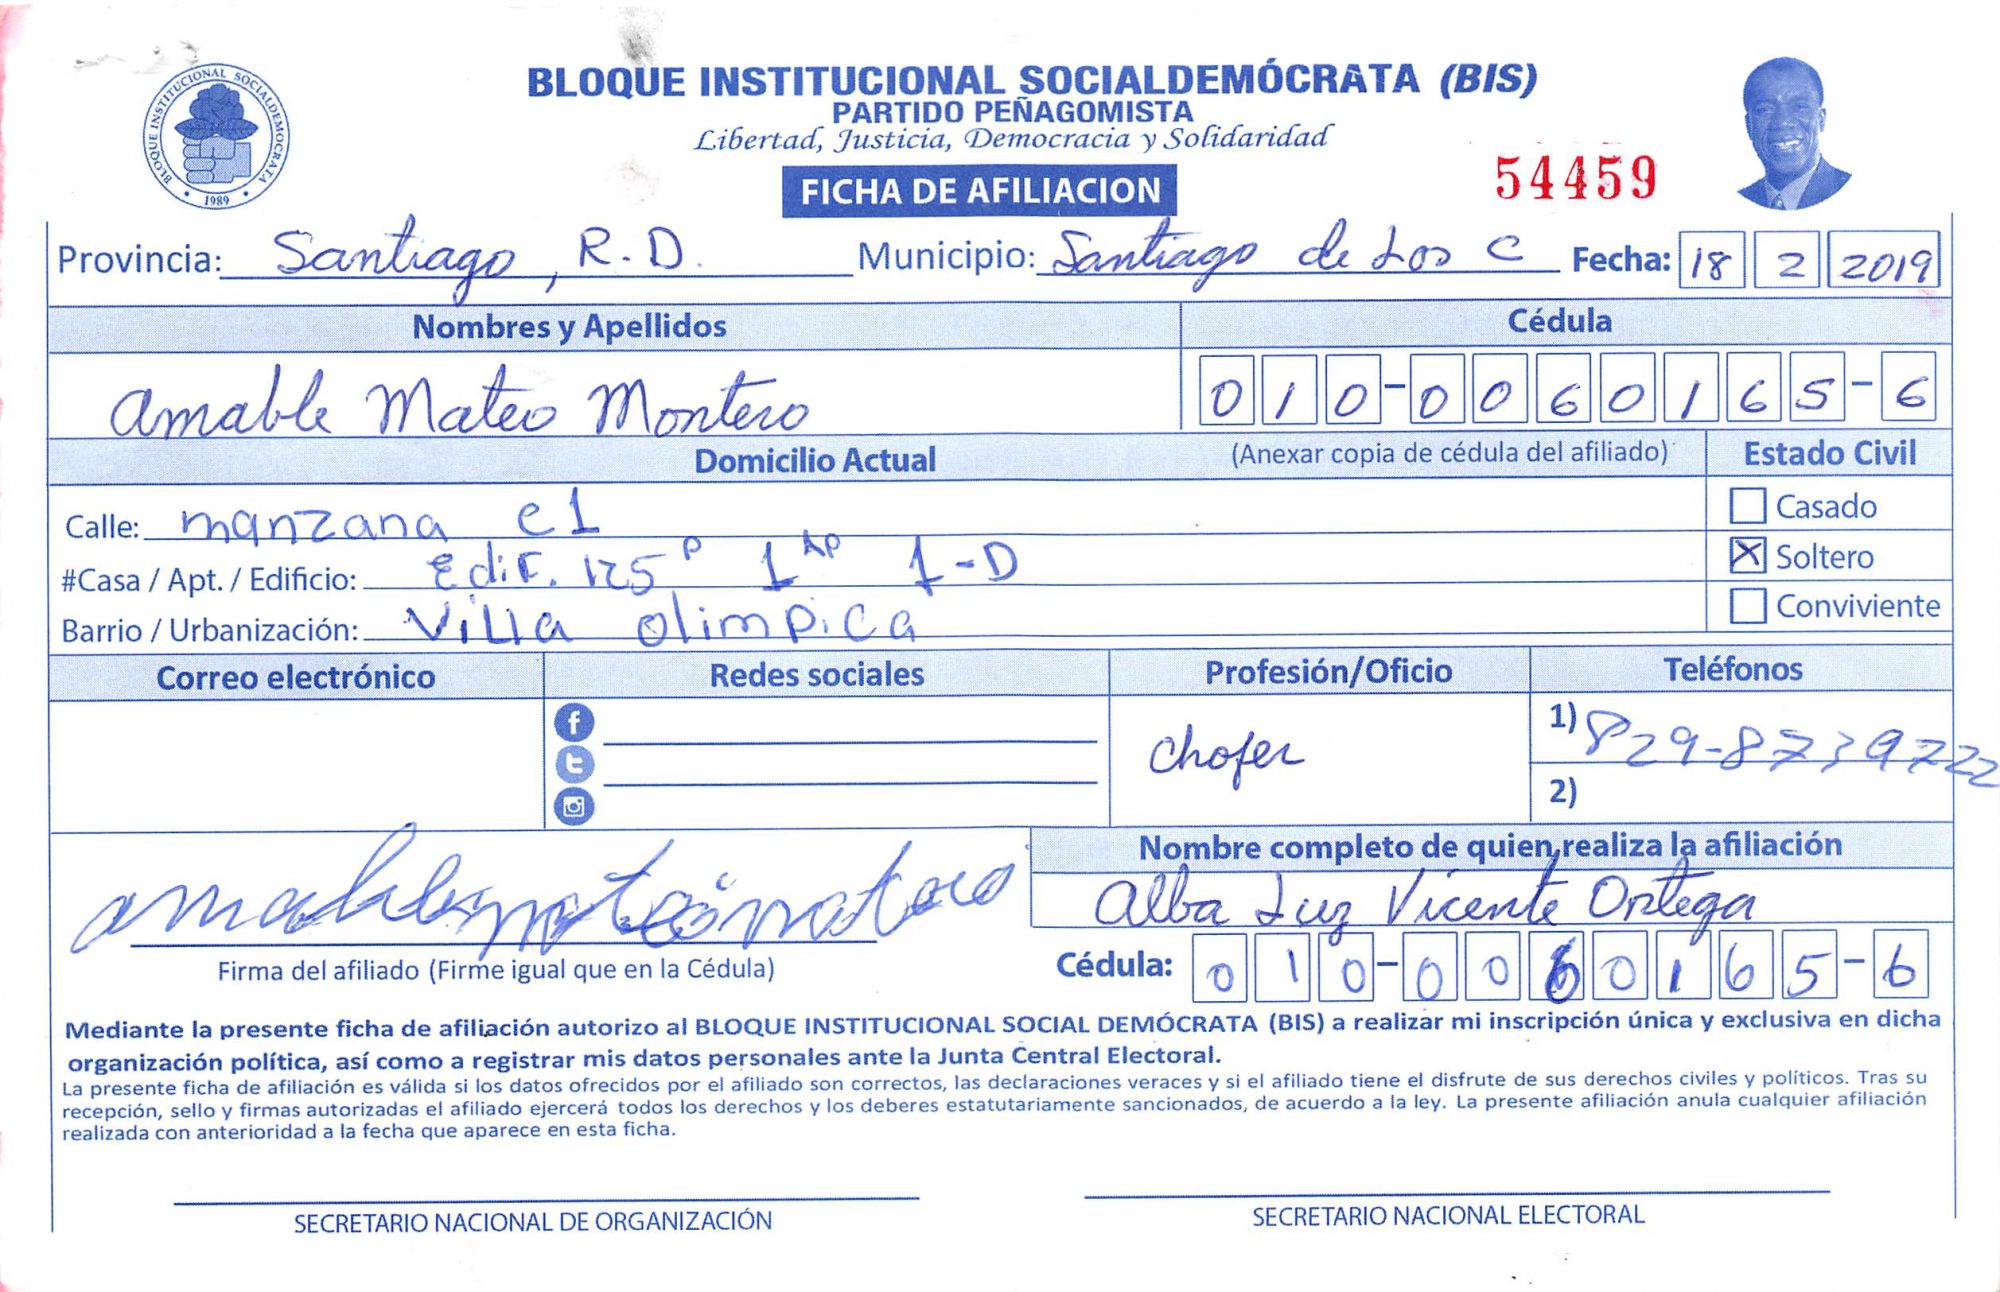 BLOQUE INSTITUCIONAL SOCIALDEMOCRATA
1989
BLOQUE INSTITUCIONAL SOCIALDEMÓCRATA (BIS)
PARTIDO PEÑAGOMISTA
Libertad, Justicia, Democracia y Solidaridad
FICHA DE AFILIACION
54459
Provincia: Santiago, R.D. Municipio: Santiago de Los C Fecha: 18 2 2019
Nombres y Apellidos Cédula
Amable Mateo Montero 010-0060165-6
Domicilio Actual (Anexar copia de cédula del afiliado) Estado Civil
Calle: manzana e1 Casado
#Casa / Apt. / Edificio: Edif. 125 P 1 AP 1-D Soltero
Barrio / Urbanización: Villa olimpica Conviviente
Correo electrónico Redes sociales Profesión/Oficio Teléfonos
Chofer 1) 829-8739722
2)
Nombre completo de quien realiza la afiliación
Alba Luz Vicente Ortega
Firma del afiliado (Firme igual que en la Cédula) Cédula: 010-0060165-6
Mediante la presente ficha de afiliación autorizo al BLOQUE INSTITUCIONAL SOCIAL DEMÓCRATA (BIS) a realizar mi inscripción única y exclusiva en dicha
organización política, así como a registrar mis datos personales ante la Junta Central Electoral.
La presente ficha de afiliación es válida si los datos ofrecidos por el afiliado son correctos, las declaraciones veraces y si el afiliado tiene el disfrute de sus derechos civiles y políticos. Tras su
recepción, sello y firmas autorizadas el afiliado ejercerá todos los derechos y los deberes estatutariamente sancionados, de acuerdo a la ley. La presente afiliación anula cualquier afiliación
realizada con anterioridad a la fecha que aparece en esta ficha.
SECRETARIO NACIONAL DE ORGANIZACIÓN SECRETARIO NACIONAL ELECTORAL